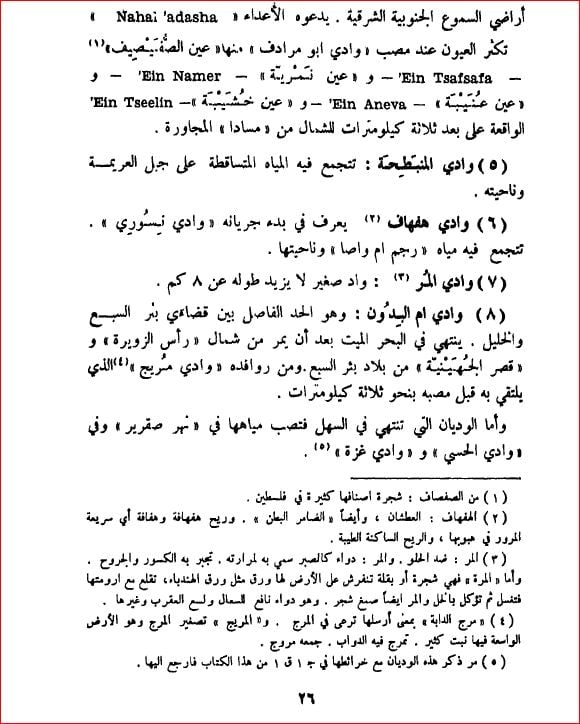 أراضي السموع الجنوبية الشرقية . يدعوه الأعداء « Nahai 'adasha »
تكثر العيون عند مصب « وادي ابو مرادف » منها «عين الصُّفَيْصِيف»(١)
— 'Ein Tsafsafa — و « عين نَمْريّة » — 'Ein Namer — و
«عين عُنَيْبَة » — 'Ein Aneva — و « عين خُشَيْبَة » — 'Ein Tseelin
الواقعة على بعد ثلاثة كيلومترات للشمال من « مسادا » المجاورة .
(٥) وادي المنبَطِحَة : تتجمع فيه المياه المتساقطة على جبل العريمة
وناحيته .
(٦) وادي هفهاف (٢) يعرف في بدء جريانه « وادي نِيسُوري » .
تتجمع فيه مياه « رجم ام واصا » وناحيتها .
(٧) وادي المُر (٣) : واد صغير لا يزيد طوله عن ٨ كم .
(٨) وادي ام البِيدُون : وهو الحد الفاصل بين قضاءَي بئر السبع
والخليل . ينتهي في البحر الميت بعد أن يمر من شمال « رأس الزويرة » و
« قصر الجُهَيْنيّة » من بلاد بئر السبع.ومن روافده « وادي مُريج »(٤)الذي
يلتقي به قبل مصبه بنحو ثلاثة كيلومترات .
وأما الوديان التي تنتهي في السهل فتصب مياهها في « نهر صقرير » وفي
«وادي الحسي » و « وادي غزة » (٥) .
(١) من الصفصاف : شجرة اصنافها كثيرة في فلسطين .
(٢) الهفهاف : العطشان ، وأيضاً « الضامر البطن » . وريح هفهافة وهفافة أي سريعة
المرور في هبوبها ، والريح الساكنة الطيبة .
(٣) المر : ضد الحلو . والمر : دواء كالصبر سمي به لمرارته . تجبر به الكسور والجروح .
وأما « المرة » فهي شجرة أو بقلة تنفرش على الأرض لها ورق مثل ورق الهندباء، تقلع مع ارومتها
فتغسل ثم تؤكل بالخل والمر ايضاً صمغ شجر . وهو دواء نافع للسعال ولسع العقرب وغيرها .
(٤) « مرج الدابة » بمعنى أرسلها ترعى في المرج . و« المريج » تصغير المرج وهو الأرض
الواسعة فيها نبت كثير . تمرج فيه الدواب . جمعه مروج .
(٥) مر ذكر هذه الوديان مع خرائطها في ج ١ ق ١ من هذا الكتاب فارجع اليها .
٢٦